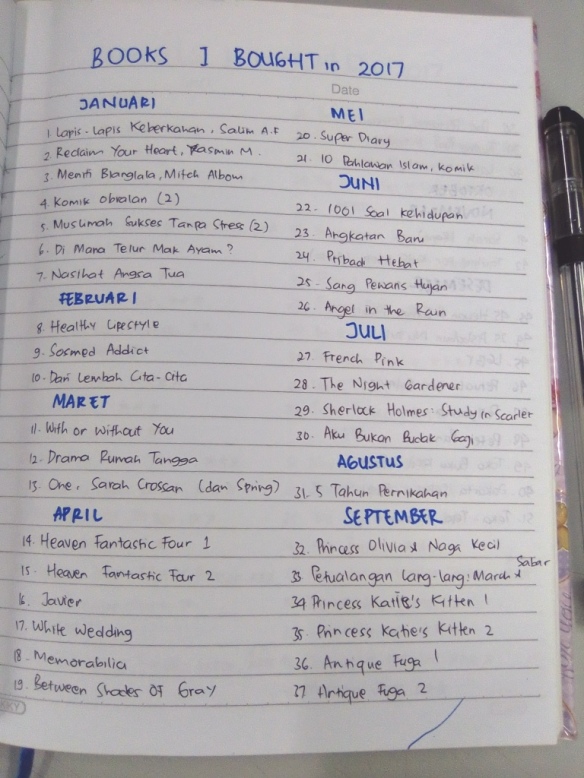 BOOKS I BOUGHT in 2017
Date
JANUARI
1. Lapis-Lapis Keberkahan, Salim A.F
2. Reclaim Your Heart, Yasmin M.
3. Meniti Bianglala, Mitch Albom
4. Komik obralan (2)
5. Muslimah Sukses Tanpa Stress (2)
6. Di Mana Telur Mak Ayam?
7. Nasihat Angsa Tua
FEBRUARI
8. Healthy Lifestyle
9. Sosmed Addict
10. Dari Lembah Cita-Cita
MARET
11. With or Without You
12. Drama Rumah Tangga
13. One, Sarah Crossan (dan Spring)
APRIL
14. Heaven Fantastic Four 1
15. Heaven Fantastic Four 2
16. Javier
17. White Wedding
18. Memorabilia
19. Between Shades Of Gray
MEI
20. Super Diary
21. 10 Pahlawan Islam, komik
JUNI
22. 1001 Soal Kehidupan
23. Angkatan Baru
24. Pribadi Hebat
25. Sang Pewaris Hujan
26. Angel in the Rain
JULI
27. French Pink
28. The Night Gardener
29. Sherlock Holmes: Study in Scarlet
30. Aku Bukan Budak Gaji
AGUSTUS
31. 5 Tahun Pernikahan
SEPTEMBER
32. Princess Olivia & Naga Kecil
33. Petualangan Lang-lang: Marah & Sabar
34 Princess Katie's Kitten 1
35. Princess Katie's Kitten 2
36. Antique Fuga 1
37 Antique Fuga 2